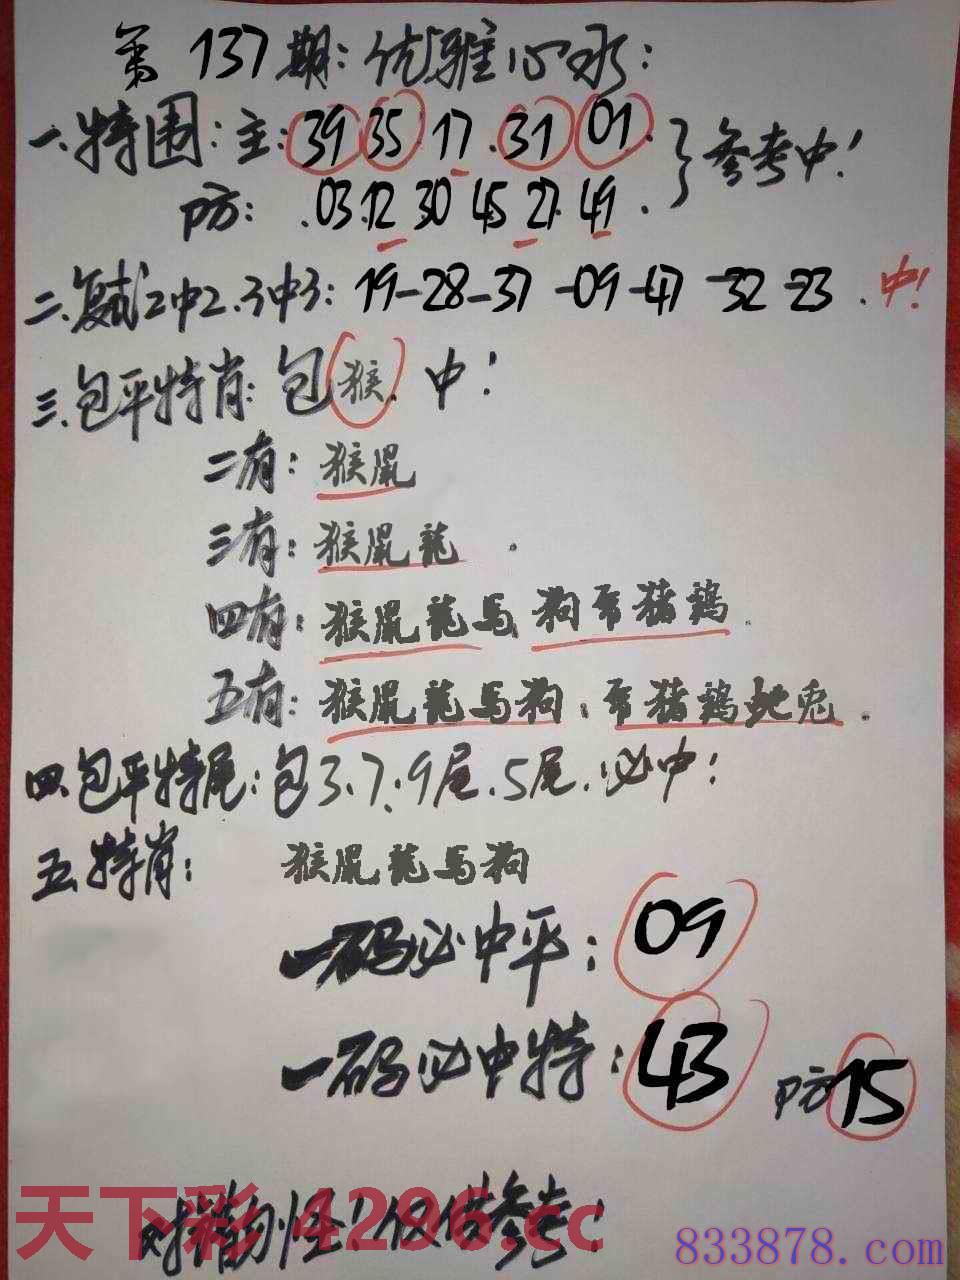 第137期:优雅心水:
一.特围:主:39 35·17.31 01·
防:.03.12 30 45 27.49.
}参考中!
二.复式2中2.3中3:19-28-37-09-47-32-23.中!
三.包平特肖:包猴.中!
二有:猴鼠
三有:猴鼠龍.
四有:猴鼠龍马.狗 猪鸡.
五有:猴鼠龍马狗. 猪鸡蛇兔.
四.包平特尾:包3.7.9尾.5尾.必中!
五.特肖: 猴鼠龍马狗
一码必中平:09
一码必中特:43 防15
料 怪!仅供参考!
天下彩 4296.cc
833878.com